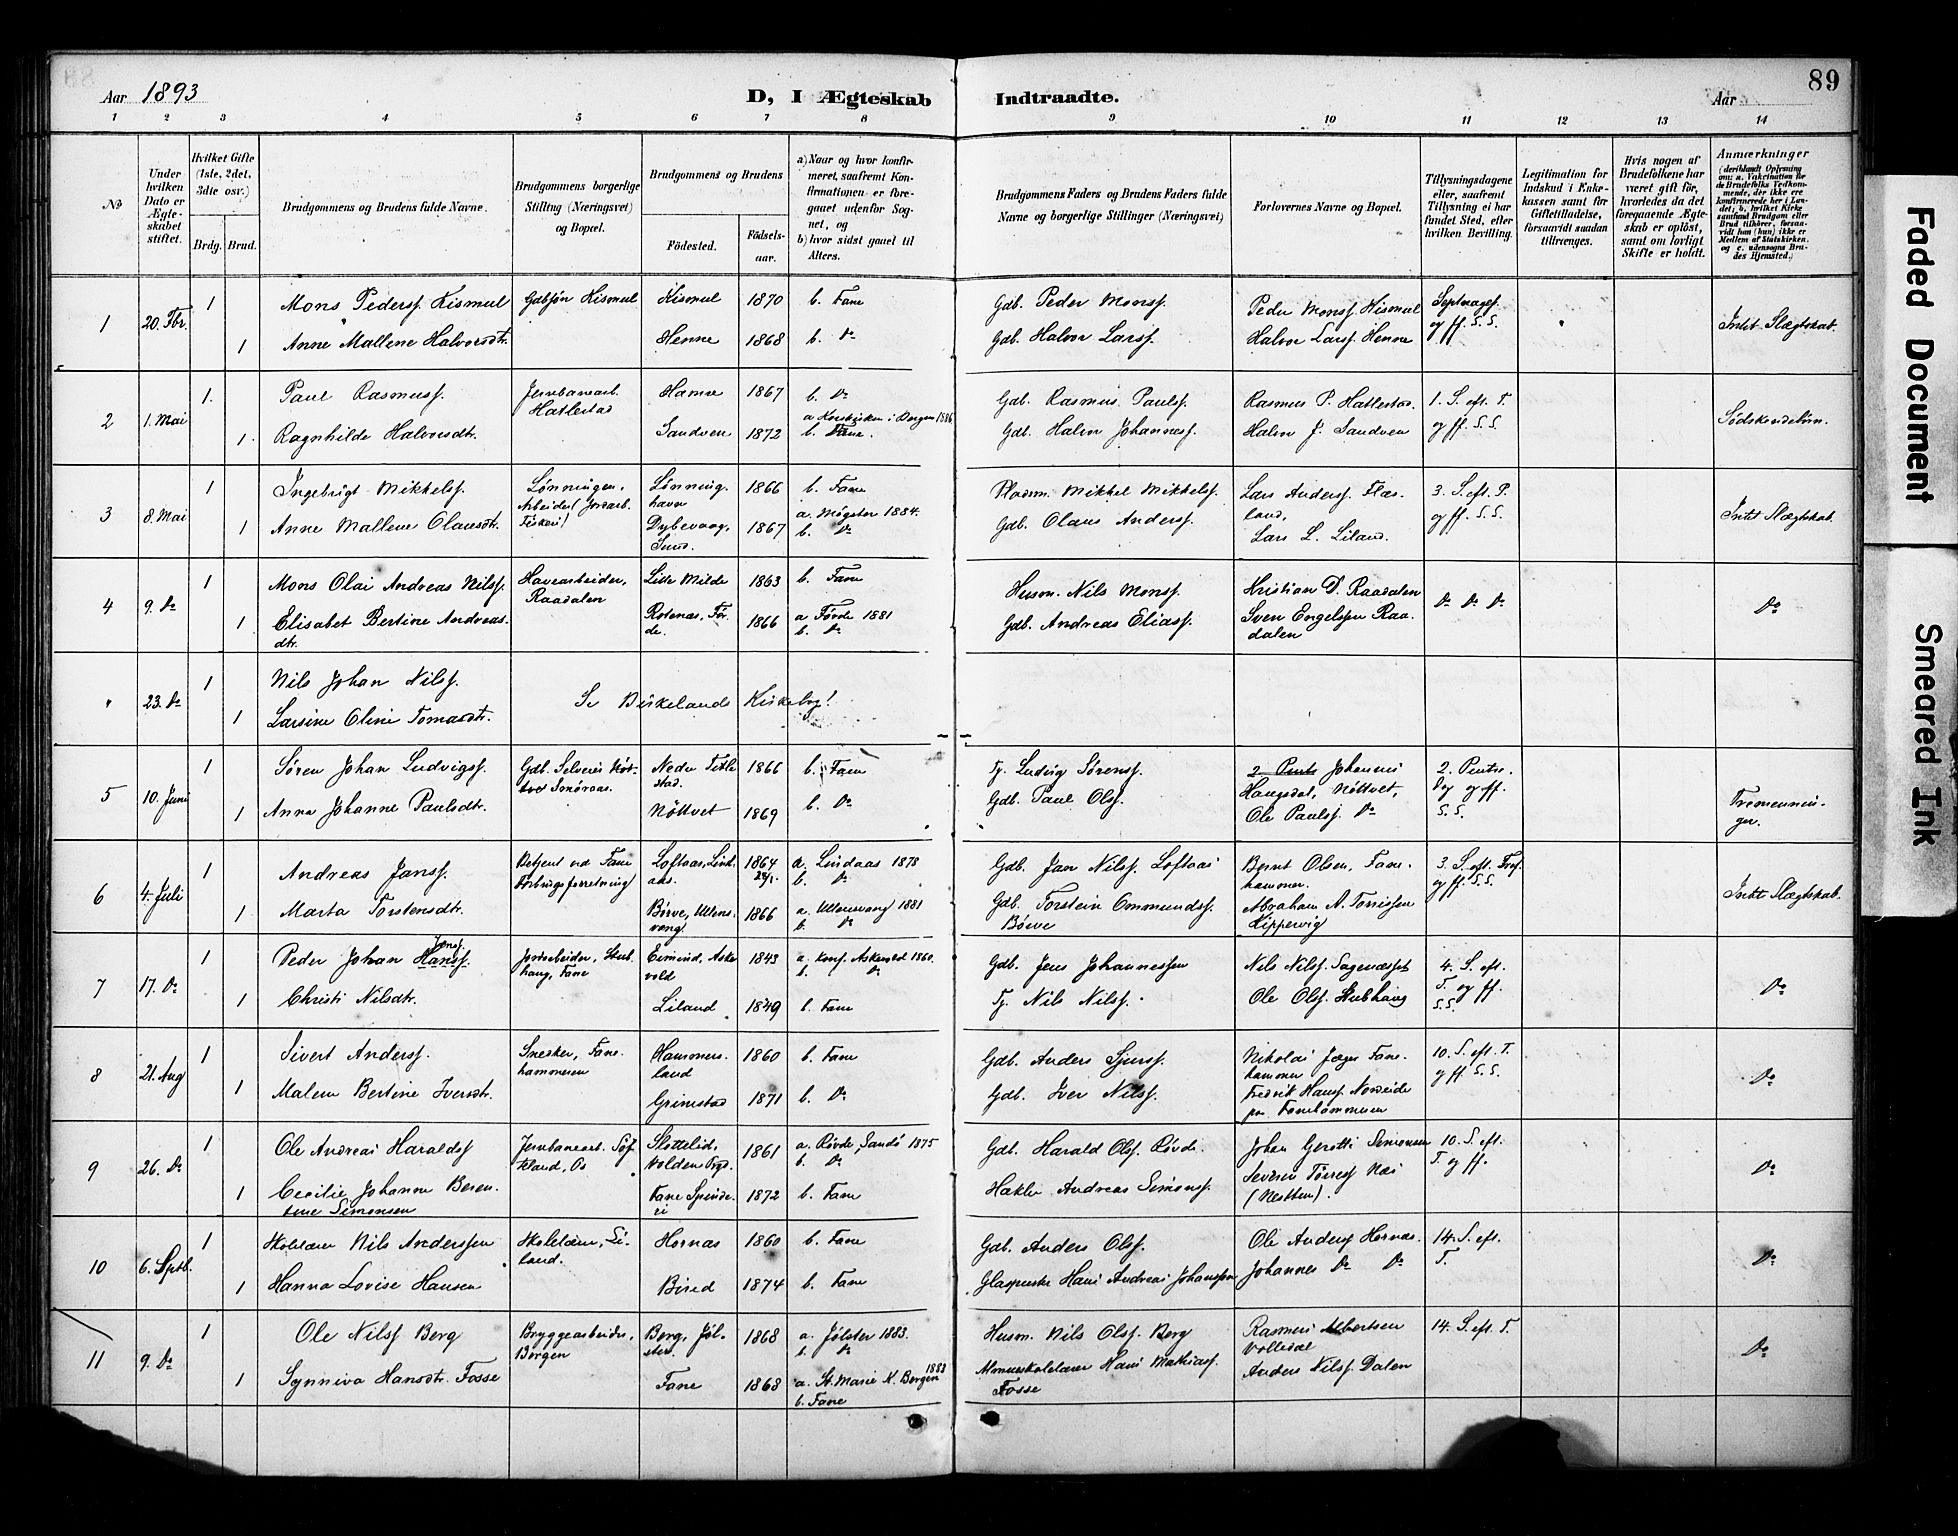 89
Aar 1893
D, I Ægteskab
Indtraadte.
Aar
1 2 3 4 5 6 7 8 9 10 11 12 13 14
No
Under hvilken Dato er Ægteskabet stiftet.
Hvilket Gifte (1ste, 2det, 3die osv.)
Brdg. Brud.
Brudgommens og Brudens fulde Navne.
Brudgommens borgerlige Stilling (Næringsvei) og Bopæl.
Brudgommens og Brudens
Födested.
Födselsaar.
a) Naar og hvor konfirmeret, saafremt Konfirmationen er foregaaet udenfor Sognet, og
b) hvor sidst gaaet til Alters.
Brudgommens Faders og Brudens Faders fulde Navne og borgerlige Stillinger (Næringsvei)
Forlovernes Navne og Bopæl.
Tillysningsdagene eller, saafremt Tillysning ei har fundet Sted, efter hvilken Bevilling.
Legitimation for Indskud i Enkekassen samt for Giftetilladelse, forsaavidt saadan tiltrænges.
Hvis nogen af Brudefolkene har været gift för, hvorledes da det foregaaende Ægteskab er oplöst, samt om lovligt Skifte er holdt.
Anmærkninger
(deriblandt Oplysning om: a. Vakcination for de Brudefolks Vedkommende, der ikke ere konfirmerede her i Landet; b. hvilket Kirkesamfund Brudgom eller Brud tilhörer, forsaavidt han (hun) ikke er Medlem af Statskirken, og c. udensogns Brudes Hjemsted.)
1 20. Fbr. 1 Mons Pederss. Kismul Gdbsøn Kismul Kismul 1870 b. Fane Gdb. Peder Monss. Peder Monss. Kismul Septuages. og ff. S. S. Intet Slægtskab.
1 Anne Mallene Halvorsdtr. Henne 1868 b. Do Gdb. Halvor Larss. Halvor Larss. Henne
2 1. Mai 1. Paul Rasmuss. Jernbanearb. Hatlestad Hamre 1867 b. Do Gdb. Rasmus Paulss. Rasmus P. Hatlestad. 1. S. eft. T. og ff. S. S. Södskendebörn.
1. Ragnhilde Halvorsdtr. Sandven 1872 a Korskirken i Bergen 1886 b. Fane. Gdb. Halvor Johanness. Halvor J. Sandven
3 8. Mai 1 Ingebrigt Mikkelss. Lönningen, Arbeider (Jordarb. Fiskeri) Lönninghavn 1866 b. Fane Pladsm. Mikkel Mikkelss. Lars Anderss. Flæsland, 3. S. eft. P. og ff. S. S. Intet Slægtskab.
1 Anne Mallene Olausdtr. Dybevaag, Sund. 1867 a. Mögster 1884. b. Do Gdb. Olaus Anderss. Lars L. Liland.
4 9. Do 1 Mons Olai Andreas Nilss. Havearbeider, Raadalen Lille Milde 1863 b. Fane Husm. Nils Monss. Kristian D. Raadalen Do Do Do Do
1 Elisabet Bertine Andreasdtr. Rotenas, Förde. 1866 a Förde 1881 b. Do Gdb. Andreas Eliass. Sven Engelssen Raadalen
" 23. Do 1 Nils Johan Nilss.
Se Birkelands Kirkebog!
1 Larsine Oline Tomasdtr.
5 10. Juni 1 Søren Johan Ludvigss. Smöraas. Nedre Titlestad. 1866 b. Fane Fg. Ludvig Sörenss. Johannes Haugsdal, Nöttvet, 2. Pintse Dag og ff. S. S. Tremenninger.
1 Anna Johanne Paulsdtr. Nöttvet 1869 b. Do Gdb. Paul Olss. Ole Paulss. Do
6 4. Juli 1 Andreas Janss. Betjent ved Fane Forbrugsforretning Loftaas, Lindaas. 1864 24/1. a. Lindaas 1878 b. Do Gdb. Jan Nilss. Loftaas Bernt Olsen, Fanehammer. 3. S. eft. Tref. og ff. S. S. Intet Slægtskab.
1 Marta Torstensdtr. Börve, Ullensvang 1866 a. Ullensvang 1881 b. Do Gdb. Torstein Ommundss. Börve Abraham A. Tonissen Kippervig
7 17. Do 1 Peder Johan Hanss. Jenss. Jordarbeider, Stubhaug, Fane Eimind, Askevold 1843 a. konf. Askevold 1860. b. Do Gdb. Jens Johannessen Nils Nilss. Sagenæsset 4. S. eft. T. og ff. S. S. Do
1 Christi Nilsdtr. Liland 1849 b. Fane Fg. Nils Nilss. Ole Olss. Stubhaug
8 21. Aug 1 Sivert Anderss. Snekker, Fanehammeren Hammersland 1860 b. Fane Gdb. Anders Sjurss. Nikolai Jæger Fanehammer 10. S. eft. T. og ff. S. S. Do
1 Malene Bertine Iversdtr. Grimstad 1871 b. Do Gdb. Iver Nilss. Fredrik Hanss. Nordeide paa Fanehammeren
9 26. Do 1 Ole Andreas Haraldss Jernbanearb. Söfteland, Os Slottelid, Volden 1861 a. Rövde, Sandö 1875 b. Do Gdb. Harald Olss. Rövde. Johan Gerotti Simonsen 10. S. eft. T. og ff. Do
1 Cecilie Johanne Berentine Simonsen Fane Spinderi 1872 b. Fane Hekler Andreas Simonss. Severin Törress Næs (Nesttun).
10 6. Sptb. 1 Skolelærer Nils Anderssen Skolelærer, Liland. Hornas 1860 b. Fane Gdb. Anders Olss. Ole Anderss Hornas. 14. S. eft. T. Do
1 Hanna Lovise Hansen Bired 1874 b. Fane Glaspuster Hans Andreas Johanssen Johannes Do Do
11 9. Do 1 Ole Nilss Berg Bryggearbeider, Bergen Berg, Jölster. 1868 a. Jølster 1883. b. Do Husm. Nils Olss. Berg Rasmus Albertsen Vollesdal 14. S. eft. T. Do
1 Synniva Hansdtr. Fosse Fane 1868 a. St. Marie K. Bergen 1883 b. Fane Almueskolelærer Hans Mathiass. Fosse Anders Nilss. Dalen
Faded Document
Smeared Ink